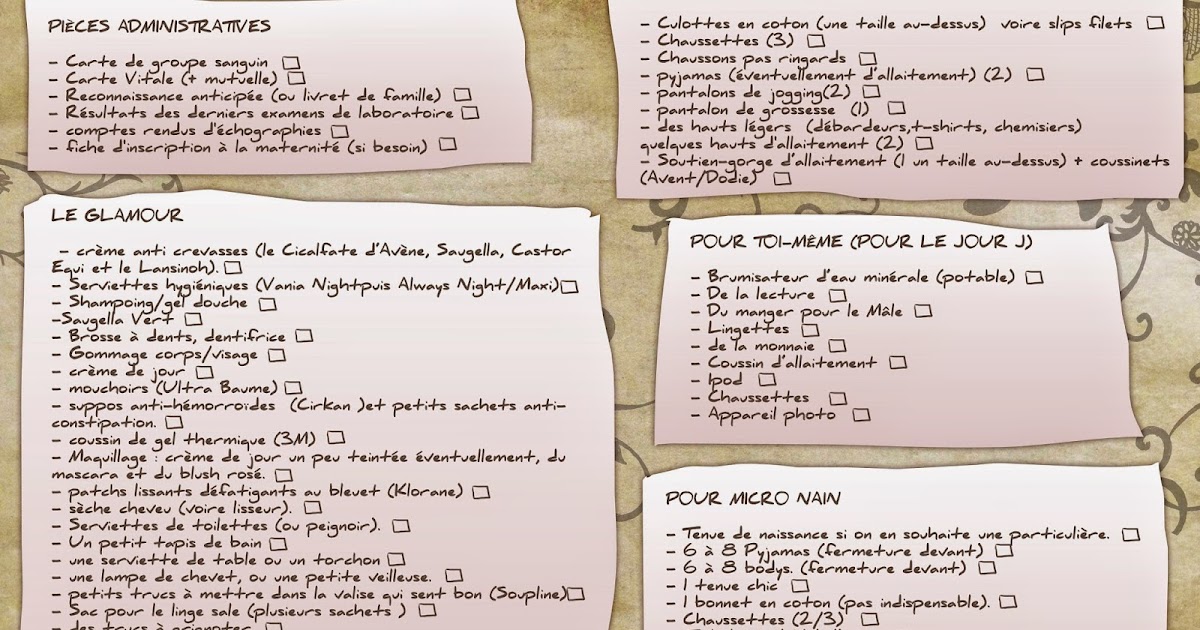 PIÈCES ADMINISTRATIVES
- Carte de groupe sanguin
- Carte Vitale (+ mutuelle)
- Reconnaissance anticipée (ou livret de famille)
- Résultats des derniers examens de laboratoire
- comptes rendus d'échographies
- fiche d'inscription à la maternité (si besoin)
LE GLAMOUR
- crème anti crevasses (le Cicalfate d'Avène, Saugella, Castor
Equi et le Lansinoh).
- Serviettes hygiéniques (Vania Nightpuis Always Night/Maxi)
- Shampoing/gel douche
-Saugella Vert
- Brosse à dents, dentifrice
- Gommage corps/visage
- crème de jour
- mouchoirs (Ultra Baume)
- suppos anti-hémorroïdes (Cirkan )et petits sachets anti-
constipation.
- coussin de gel thermique (3M)
- Maquillage : crème de jour un peu teintée éventuellement, du
mascara et du blush rosé.
- patchs lissants défatigants au bleuet (Klorane)
- sèche cheveu (voire lisseur).
- Serviettes de toilettes (ou peignoir).
- Un petit tapis de bain
- une serviette de table ou un torchon
- une lampe de chevet, ou une petite veilleuse.
- petits trucs à mettre dans la valise qui sent bon (Soupline)
- Sac pour le linge sale (plusieurs sachets )
- des trucs à grignoter
- Culottes en coton (une taille au-dessus) voire slips filets
- Chaussettes (3)
- Chaussons pas ringards
- pyjamas (éventuellement d'allaitement) (2)
- pantalons de jogging(2)
- pantalon de grossesse (1)
- des hauts légers (débardeurs,t-shirts, chemisiers)
quelques hauts d'allaitement (2)
- Soutien-gorge d'allaitement (1 un taille au-dessus) + coussinets
(Avent/Dodie)
POUR TOI-MÊME (POUR LE JOUR J)
- Brumisateur d'eau minérale (potable)
- De la lecture
- Du manger pour le Mâle
- Lingettes
- de la monnaie
- Coussin d'allaitement
- Ipod
- Chaussettes
- Appareil photo
POUR MICRO NAIN
- Tenue de naissance si on en souhaite une particulière.
- 6 à 8 Pyjamas (fermeture devant)
- 6 à 8 bodys. (fermeture devant)
- 1 tenue chic
- 1 bonnet en coton (pas indispensable).
- Chaussettes (2/3)